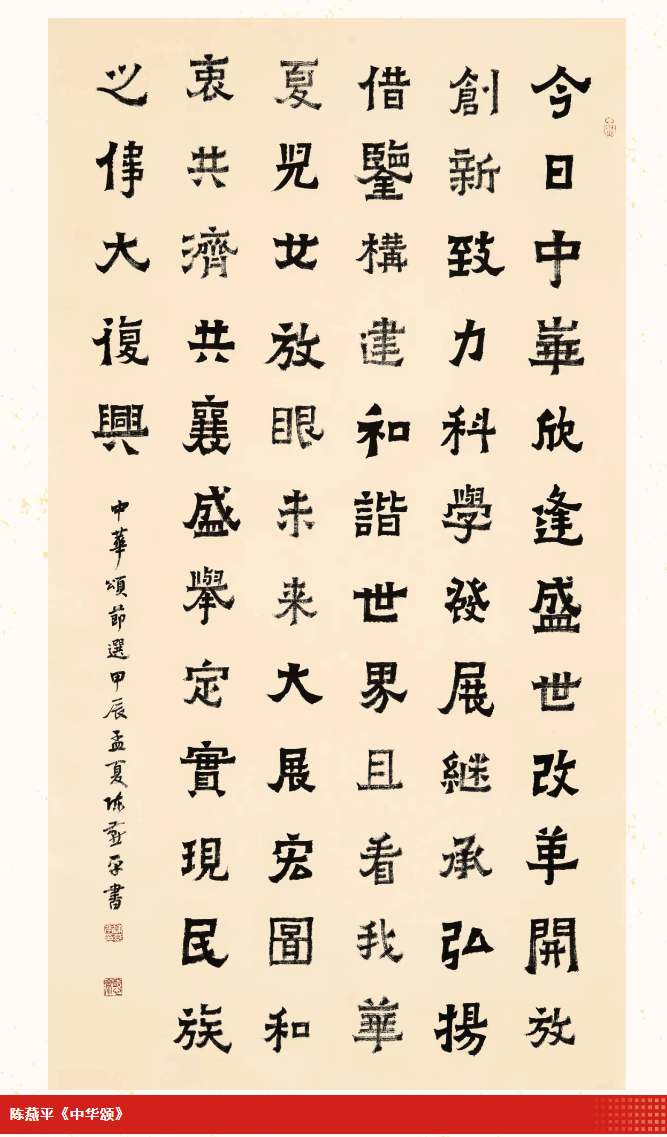 今日中華欣逢盛世改革開放
創新致力科學發展継承弘揚
借鑒構建和諧世界且看我華
夏兒女放眼未来大展宏圖和
衷共濟共襄盛舉定實現民族
之偉大復興
中華頌節選甲辰孟夏陳燕平書
陈燕平《中华颂》